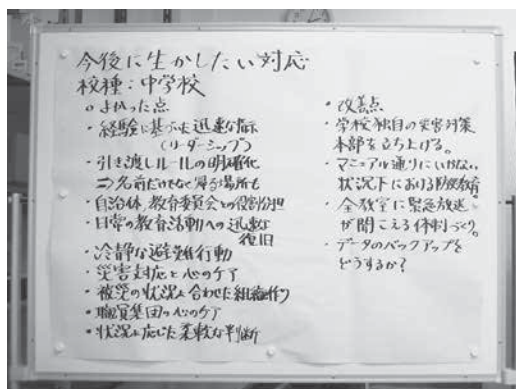 今後に生かしたい対応
校種：中学校
○よかった点
・経験に基づいた迅速な指示
（リーダーシップ）
・引き渡しルールの明確化
⇒名前だけでなく帰る場所も
・自治体、教育委員会との役割分担
・日常の教育活動への迅速な
復旧
・冷静な避難行動
・災害対応と心のケア
・被災の状況に合わせた組織作り
・職員集団の心のケア
・状況に応じた柔軟な判断
○改善点
・学校独自の災害対策
本部を立ち上げる。
・マニュアル通りにいかない
状況下における防災教育
・全教室に緊急放送
が聞こえる体制づくり。
・データのバックアップを
どうするか？